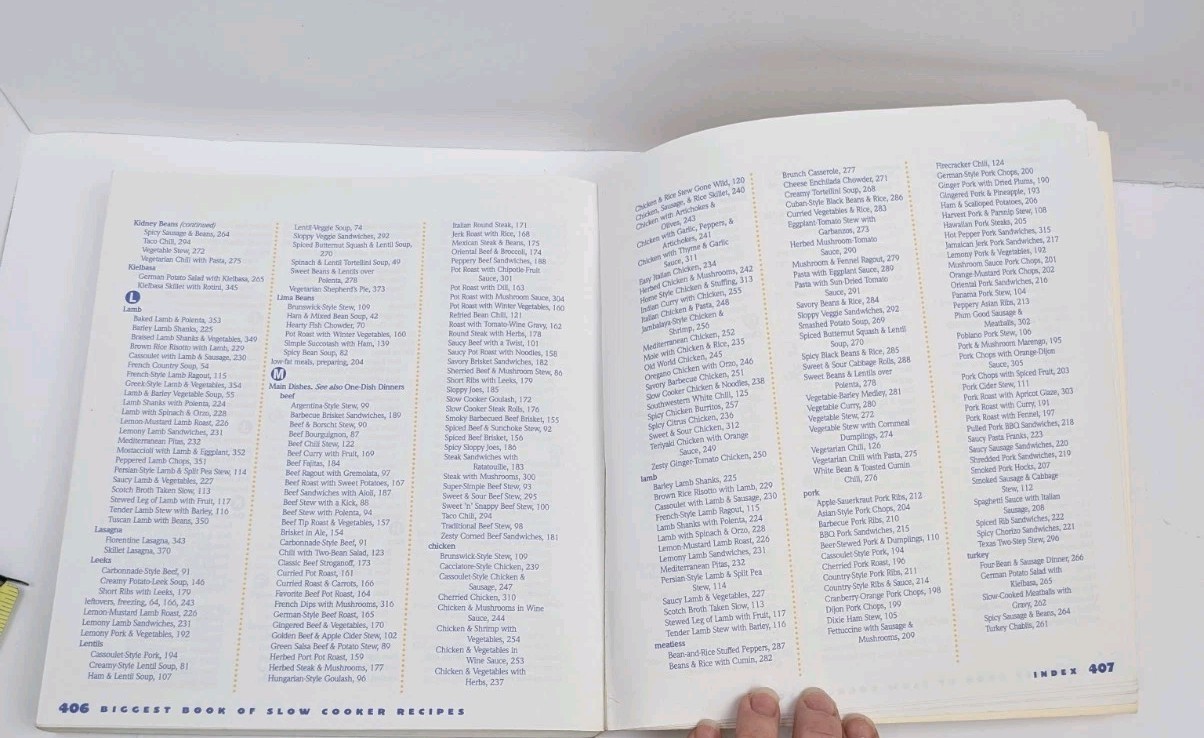 Kidney Beans (continued)
Spicy Sausage & Beans, 264
Taco Chili, 294
Vegetable Stew, 272
Vegetarian Chili with Pasta, 275
Kielbasa
German Potato Salad with Kielbasa, 265
Kielbasa Skillet with Rotini, 345
L
Lamb
Baked Lamb & Polenta, 353
Barley Lamb Shanks, 225
Braised Lamb Shanks & Vegetables, 349
Brown Rice Risotto with Lamb, 229
Cassoulet with Lamb & Sausage, 230
French Country Soup, 54
French-Style Lamb Ragout, 115
Greek-Style Lamb & Vegetables, 354
Lamb & Barley Vegetable Soup, 55
Lamb Shanks with Polenta, 224
Lamb with Spinach & Orzo, 228
Lemon-Mustard Lamb Roast, 226
Lemony Lamb Sandwiches, 231
Mediterranean Pitas, 232
Mostaccioli with Lamb & Eggplant, 352
Peppered Lamb Chops, 351
Persian-Style Lamb & Split Pea Stew, 114
Saucy Lamb & Vegetables, 227
Scotch Broth Taken Slow, 113
Stewed Leg of Lamb with Fruit, 117
Tender Lamb Stew with Barley, 116
Tuscan Lamb with Beans, 350
Lasagna
Florentine Lasagna, 343
Skillet Lasagna, 370
Leeks
Carbonnade-Style Beef, 91
Creamy Potato-Leek Soup, 146
Short Ribs with Leeks, 179
leftovers, freezing, 64, 166, 243
Lemon-Mustard Lamb Roast, 226
Lemony Lamb Sandwiches, 231
Lemony Pork & Vegetables, 192
Lentils
Cassoulet-Style Pork, 194
Creamy-Style Lentil Soup, 81
Ham & Lentil Soup, 107
Lentil-Veggie Soup, 74
Sloppy Veggie Sandwiches, 292
Spiced Butternut Squash & Lentil Soup,
270
Spinach & Lentil Tortellini Soup, 49
Sweet Beans & Lentils over
Polenta, 278
Vegetarian Shepherd's Pie, 373
Lima Beans
Brunswick-Style Stew, 109
Ham & Mixed Bean Soup, 42
Hearty Fish Chowder, 70
Pot Roast with Winter Vegetables, 160
Simple Succotash with Ham, 139
Spicy Bean Soup, 82
low-fat meals, preparing, 204
M
Main Dishes. See also One-Dish Dinners
beef
Argentina-Style Stew, 99
Barbecue Brisket Sandwiches, 189
Beef & Borscht Stew, 90
Beef Bourguignon, 87
Beef Chili Stew, 122
Beef Curry with Fruit, 169
Beef Fajitas, 184
Beef Ragout with Gremolata, 97
Beef Roast with Sweet Potatoes, 167
Beef Sandwiches with Aioli, 187
Beef Stew with a Kick, 88
Beef Stew with Polenta, 94
Beef Tip Roast & Vegetables, 157
Brisket in Ale, 154
Carbonnade-Style Beef, 91
Chili with Two-Bean Salad, 123
Classic Beef Stroganoff, 173
Curried Pot Roast, 161
Curried Roast & Carrots, 166
Favorite Beef Pot Roast, 164
French Dips with Mushrooms, 316
German-Style Beef Roast, 165
Gingered Beef & Vegetables, 170
Golden Beef & Apple Cider Stew, 102
Green Salsa Beef & Potato Stew, 89
Herbed Port Pot Roast, 159
Herbed Steak & Mushrooms, 177
Hungarian-Style Goulash, 96
Italian Round Steak, 171
Jerk Roast with Rice, 168
Mexican Steak & Beans, 175
Oriental Beef & Broccoli, 174
Peppery Beef Sandwiches, 188
Pot Roast with Chipotle-Fruit
Sauce, 301
Pot Roast with Dill, 163
Pot Roast with Mushroom Sauce, 304
Pot Roast with Winter Vegetables, 160
Refried Bean Chili, 121
Roast with Tomato-Wine Gravy, 162
Round Steak with Herbs, 178
Saucy Beef with a Twist, 101
Saucy Pot Roast with Noodles, 158
Savory Brisket Sandwiches, 182
Sherried Beef & Mushroom Stew, 86
Short Ribs with Leeks, 179
Sloppy Joes, 185
Slow Cooker Goulash, 172
Slow Cooker Steak Rolls, 176
Smoky Barbecued Beef Brisket, 155
Spiced Beef & Sunchoke Stew, 92
Spiced Beef Brisket, 156
Spicy Sloppy Joes, 186
Steak Sandwiches with
Ratatouille, 183
Steak with Mushrooms, 300
Super-Simple Beef Stew, 93
Sweet & Sour Beef Stew, 295
Sweet 'n' Snappy Beef Stew, 100
Taco Chili, 294
Traditional Beef Stew, 98
Zesty Corned Beef Sandwiches, 181
chicken
Brunswick-Style Stew, 109
Cacciatore-Style Chicken, 239
Cassoulet-Style Chicken &
Sausage, 247
Cherried Chicken, 310
Chicken & Mushrooms in Wine
Sauce, 244
Chicken & Shrimp with
Vegetables, 254
Chicken & Vegetables in
Wine Sauce, 253
Chicken & Vegetables with
Herbs, 237
406 BIGGEST BOOK OF SLOW COOKER RECIPES
Chicken & Rice Stew Gone Wild, 120
Chicken, Sausage, & Rice Skillet, 240
Chicken with Artichokes &
Olives, 243
Chicken with Garlic, Peppers, &
Artichokes, 241
Chicken with Thyme & Garlic
Sauce, 311
Easy Italian Chicken, 234
Herbed Chicken & Mushrooms, 242
Home Style Chicken & Stuffing, 313
Indian Curry with Chicken, 255
Italian Chicken & Pasta, 248
Jambalaya-Style Chicken &
Shrimp, 256
Mediterranean Chicken, 252
Mole with Chicken & Rice, 235
Old World Chicken, 245
Oregano Chicken with Orzo, 246
Savory Barbecue Chicken, 251
Slow Cooker Chicken & Noodles, 238
Southwestern White Chili, 125
Spicy Chicken Burritos, 257
Spicy Citrus Chicken, 236
Sweet & Sour Chicken, 312
Teriyaki Chicken with Orange
Sauce, 249
Zesty Ginger-Tomato Chicken, 250
lamb
Barley Lamb Shanks, 225
Brown Rice Risotto with Lamb, 229
Cassoulet with Lamb & Sausage, 230
French-Style Lamb Ragout, 115
Lamb Shanks with Polenta, 224
Lamb with Spinach & Orzo, 228
Lemon-Mustard Lamb Roast, 226
Lemony Lamb Sandwiches, 231
Mediterranean Pitas, 232
Persian-Style Lamb & Split Pea
Stew, 114
Saucy Lamb & Vegetables, 227
Scotch Broth Taken Slow, 113
Stewed Leg of Lamb with Fruit, 117
Tender Lamb Stew with Barley, 116
meatless
Bean-and-Rice Stuffed Peppers, 287
Beans & Rice with Cumin, 282
Brunch Casserole, 277
Cheese Enchilada Chowder, 271
Creamy Tortellini Soup, 268
Cuban-Style Black Beans & Rice, 286
Curried Vegetables & Rice, 283
Eggplant-Tomato Stew with
Garbanzos, 273
Herbed Mushroom-Tomato
Sauce, 290
Mushroom & Fennel Ragout, 279
Pasta with Eggplant Sauce, 289
Pasta with Sun-Dried Tomato
Sauce, 291
Savory Beans & Rice, 284
Sloppy Veggie Sandwiches, 292
Smashed Potato Soup, 269
Spiced Butternut Squash & Lentil
Soup, 270
Spicy Black Beans & Rice, 285
Sweet & Sour Cabbage Rolls, 288
Sweet Beans & Lentils over
Polenta, 278
Vegetable-Barley Medley, 281
Vegetable Curry, 280
Vegetable Stew, 272
Vegetable Stew with Cornmeal
Dumplings, 274
Vegetarian Chili, 126
Vegetarian Chili with Pasta, 275
White Bean & Toasted Cumin
Chili, 276
pork
Apple-Sauerkraut Pork Ribs, 212
Asian-Style Pork Chops, 204
Barbecue Pork Ribs, 210
BBQ Pork Sandwiches, 215
Beer-Stewed Pork & Dumplings, 110
Cassoulet-Style Pork, 194
Cherried Pork Roast, 196
Country-Style Pork Ribs, 211
Country Style Ribs & Sauce, 214
Cranberry-Orange Pork Chops, 198
Dijon Pork Chops, 199
Dixie Ham Stew, 105
Fettuccine with Sausage &
Mushrooms, 209
Firecracker Chili, 124
German-Style Pork Chops, 200
Ginger Pork with Dried Plums, 190
Gingered Pork & Pineapple, 193
Ham & Scalloped Potatoes, 206
Harvest Pork & Parsnip Stew, 108
Hawaiian Pork Steaks, 205
Hot Pepper Pork Sandwiches, 315
Jamaican Jerk Pork Sandwiches, 217
Lemony Pork & Vegetables, 192
Mushroom Sauce Pork Chops, 201
Orange-Mustard Pork Chops, 202
Oriental Pork Sandwiches, 216
Panama Pork Stew, 104
Peppery Asian Ribs, 213
Plum Good Sausage &
Meatballs, 302
Poblano Pork Stew, 106
Pork & Mushroom Marengo, 195
Pork Chops with Orange-Dijon
Sauce, 305
Pork Chops with Spiced Fruit, 203
Pork Cider Stew, 111
Pork Roast with Apricot Glaze, 303
Pork Roast with Curry, 191
Pork Roast with Fennel, 197
Pulled Pork BBQ Sandwiches, 218
Saucy Pasta Franks, 223
Saucy Sausage Sandwiches, 220
Shredded Pork Sandwiches, 219
Smoked Pork Hocks, 207
Smoked Sausage & Cabbage
Stew, 112
Spaghetti Sauce with Italian
Sausage, 208
Spiced Rib Sandwiches, 222
Spicy Chorizo Sandwiches, 221
Texas Two-Step Stew, 296
turkey
Four-Bean & Sausage Dinner, 266
German Potato Salad with
Kielbasa, 265
Slow-Cooked Meatballs with
Gravy, 262
Spicy Sausage & Beans, 264
Turkey Chablis, 261
INDEX 407